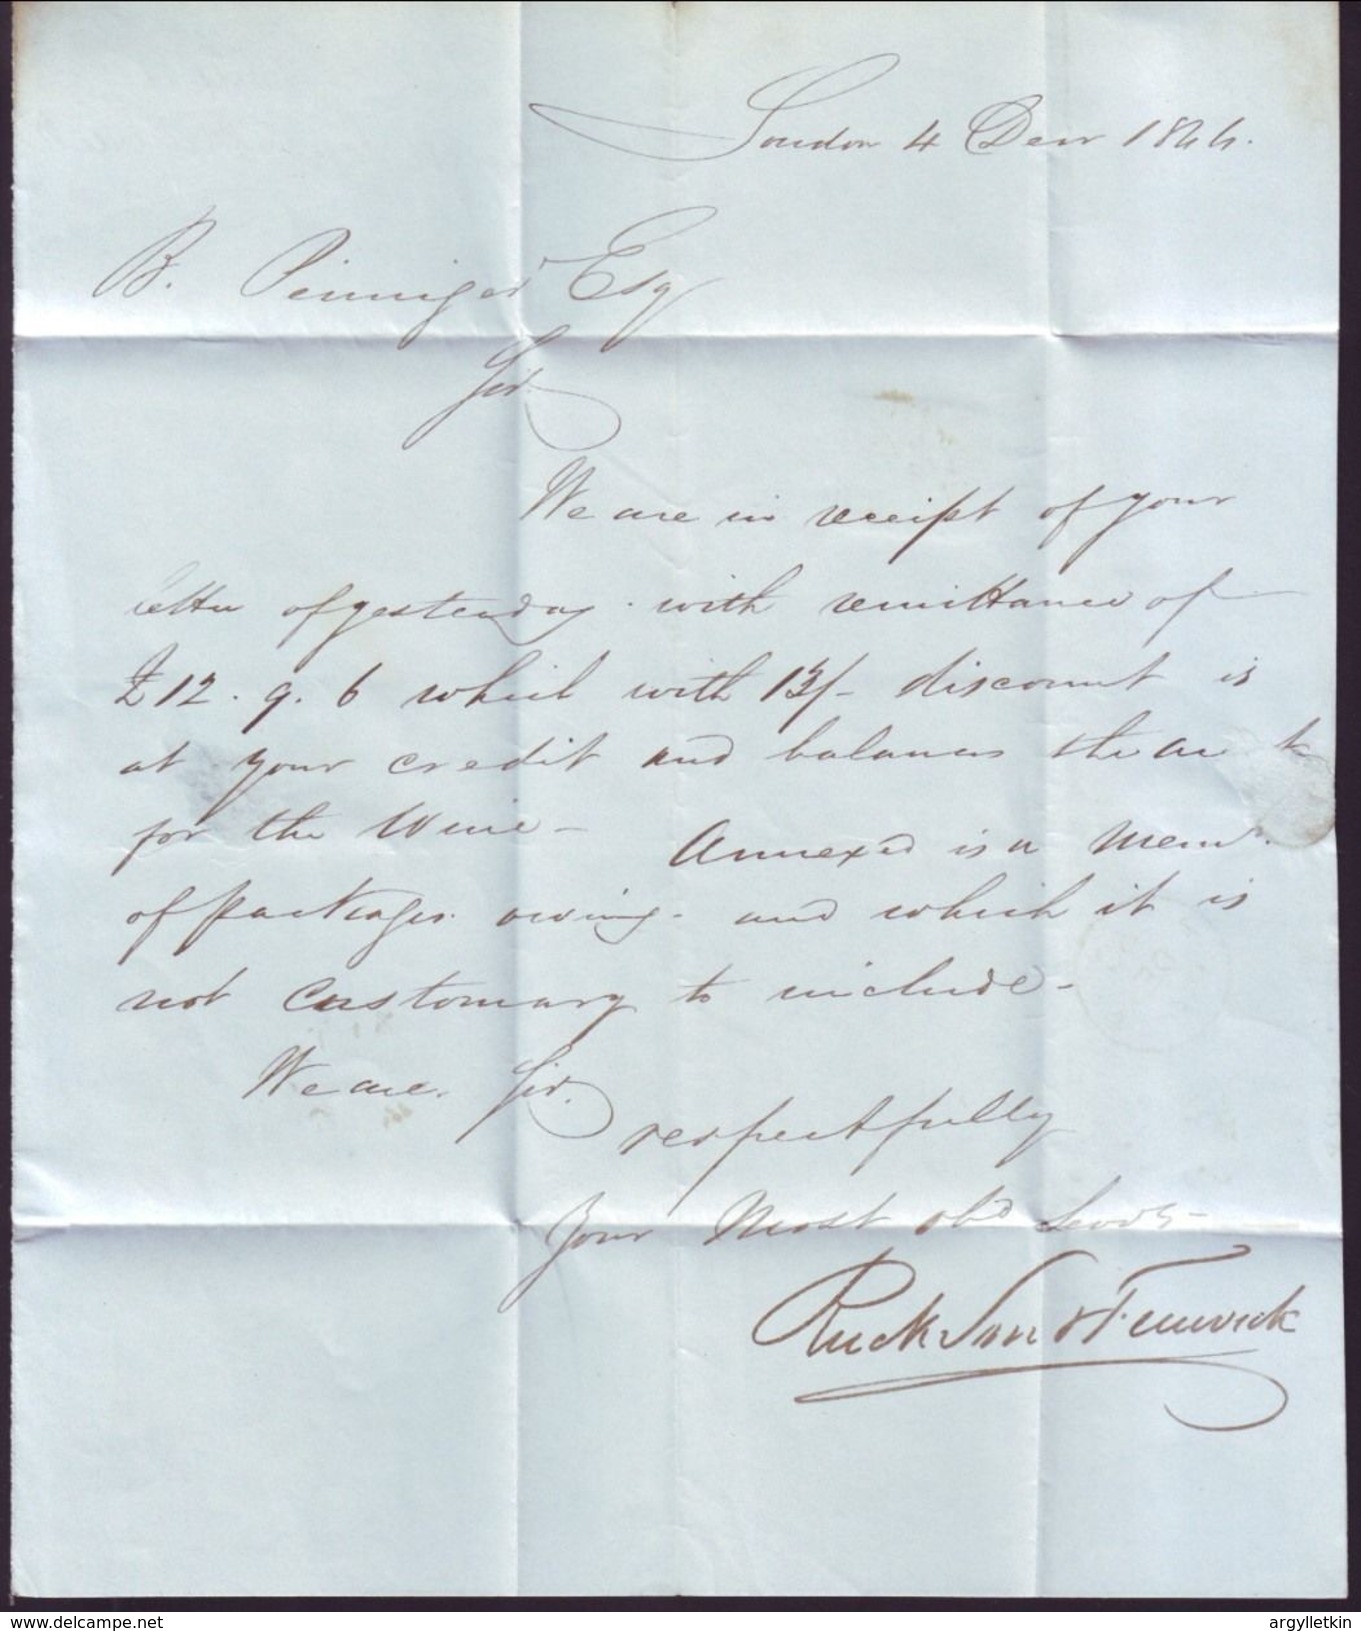 London 4 Decr 1844.
B. Penniger Esq
Sir
We are in receipt of your
letter of yesterday. with remittance of
£12. 9. 6 which with 13/- discount is
at your credit and balances the a/c to
for the Wine - Annexed is a Memo.
of packages owing - and which it is
not customary to include -
We are. Sir.
respectfully
Your Most obd Servts
Ruck Son & Fenwick
www.delcampe.net
argylletkin